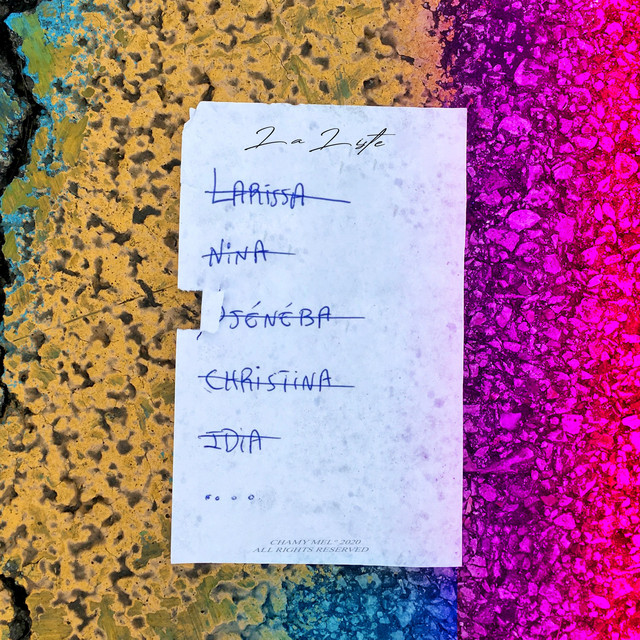 La Liste
LARISSA
NINA
DJÉNÉBA
CHRISTINA
IDIA
....
CHAMY MEL® 2020
ALL RIGHTS RESERVED